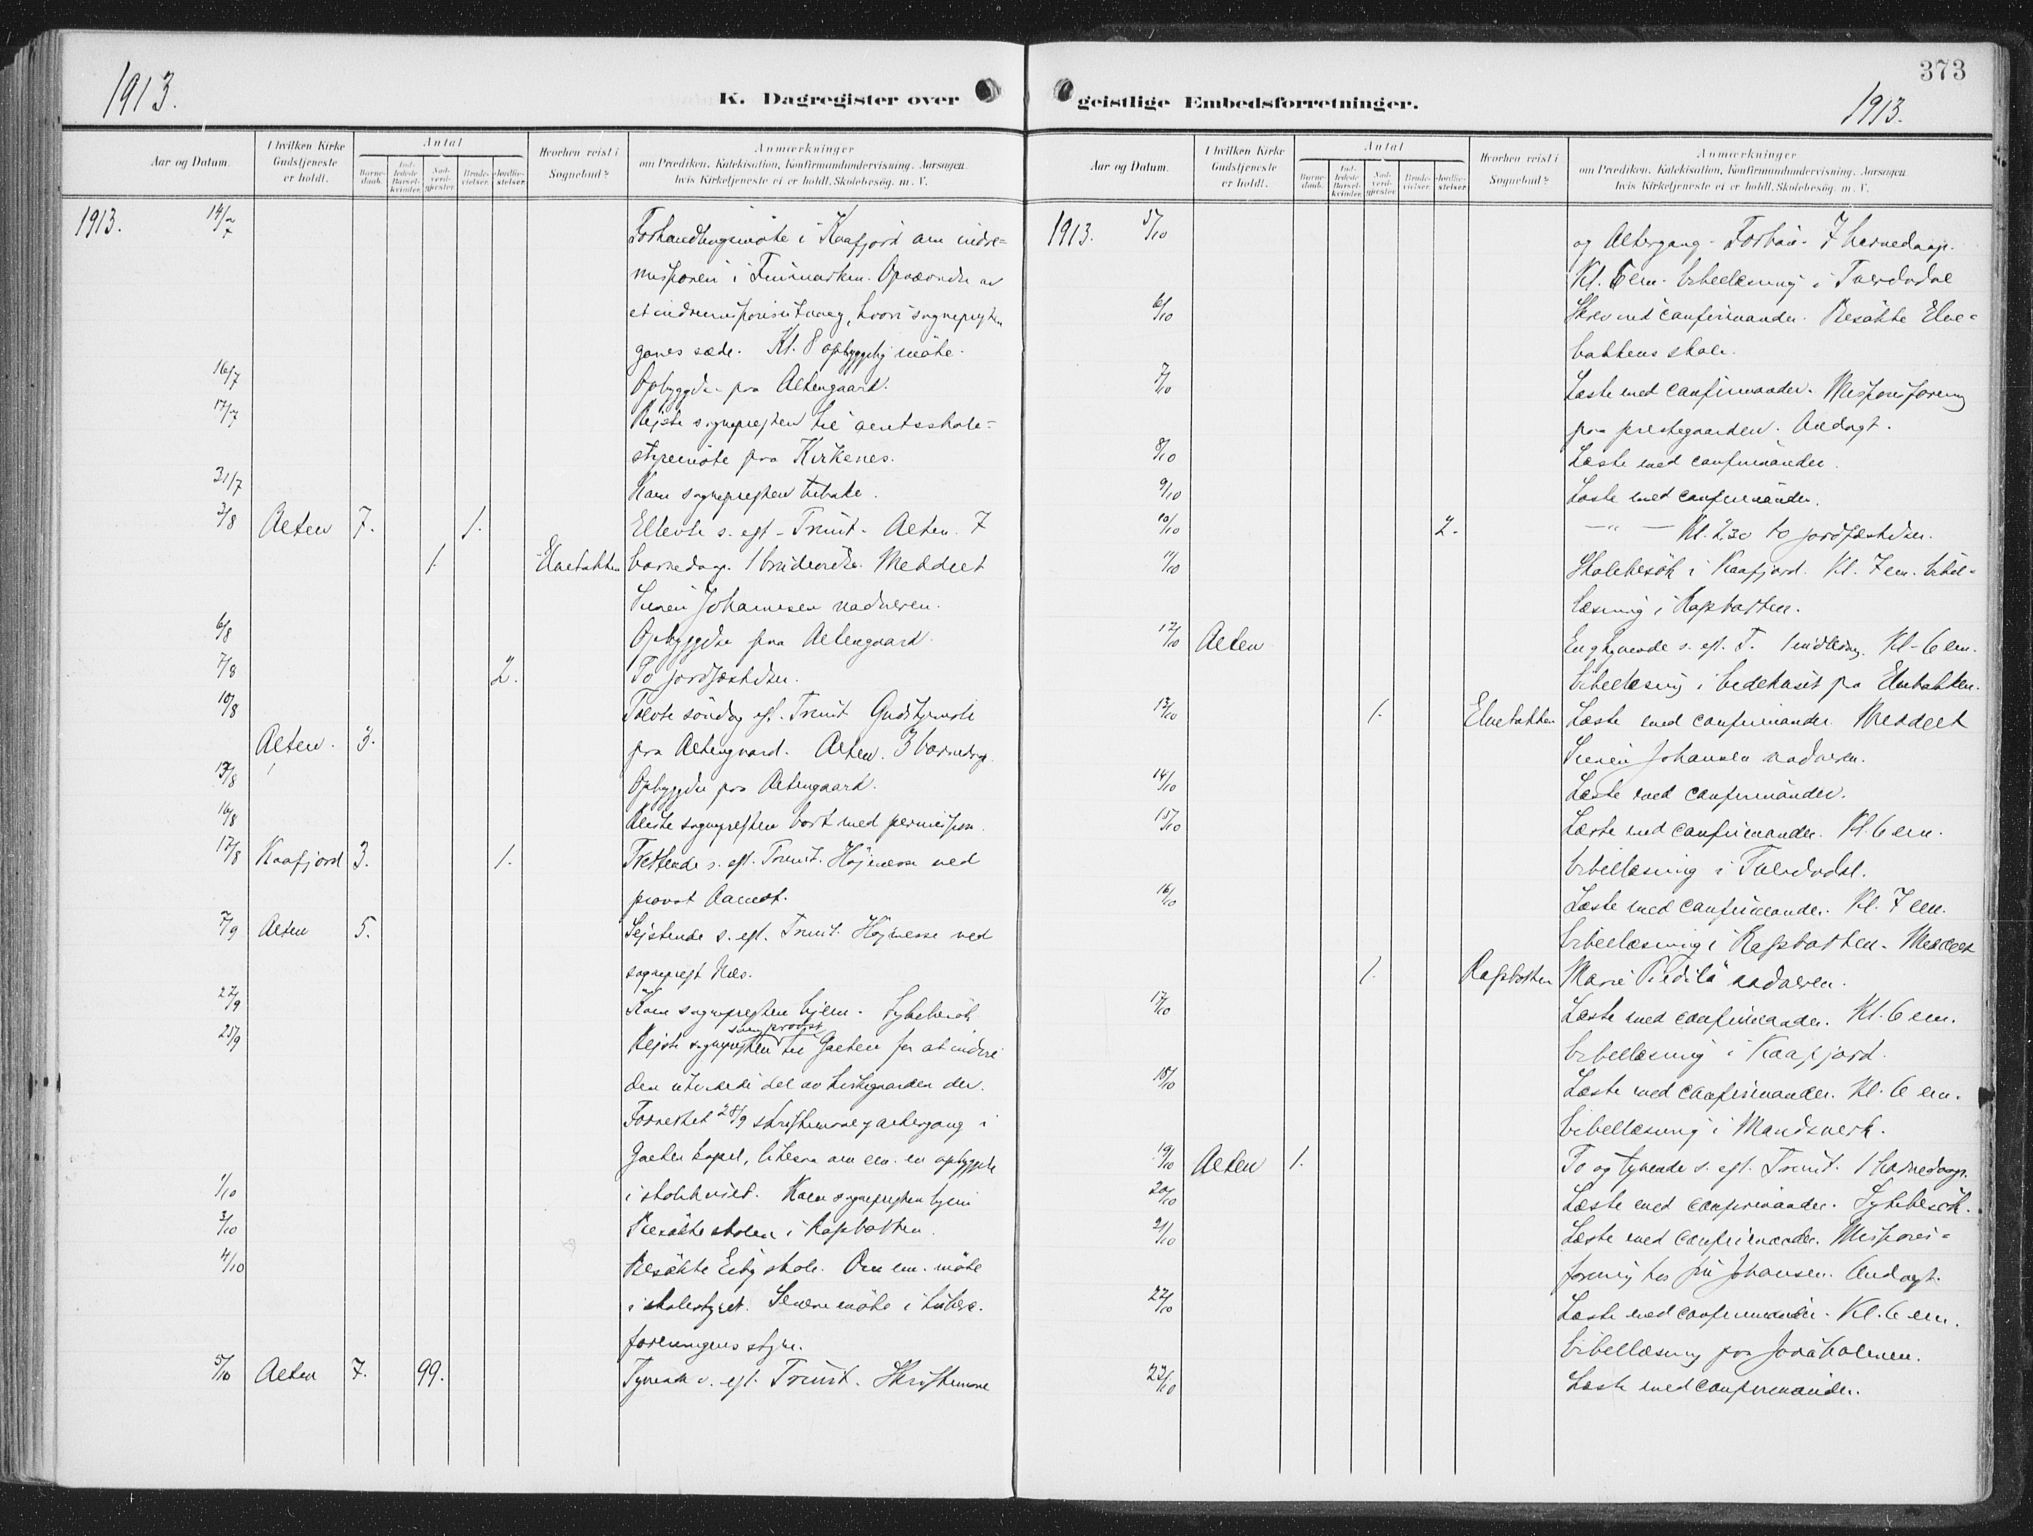 1913.
K. Dagregister over
Aar og Datum.
I hvilken Kirke Gudstjeneste er holdt.
Antal
Barne-daab.
Ind-ledede Barsel-kvinder.
Nad-verd-gjester.
Brude-vielser.
Jordfæ-stelser.
Hvorhen reist i Sognebud?
Anmærkninger
om Prædiken, Katekisation, Konfirmandundervisning, Aarsagen,
hvis Kirketjeneste ei er holdt, Skolebesøg, m. V.
1913. 14/7 Forhandlingsmöte i Kaafjord om indre-
missionen i Finmarken. Oprættedes
et indremissionsutvalg, hvori sognepresten
gaves sæde. Kl. 8 opbyggelig möte.
16/7 Opbyggelse paa Altengaard.
17/7 Rejste sognepresten til amtsskole-
styremöte paa Kirkenes.
31/7 Kom sognepresten tilbake.
3/8 Alten 7. 1. Ellevte s. eft. Trinit. Alten. 7
1. Elvebakken barnedaap. 1 brudevielse. Meddelt
Johannesen nadveren.
6/8 Opbyggelse paa Altengaard.
7/8 2. To jordfæstelser.
10/8 Tolvte söndag eft. Trinit. Gudstjeneste
Alten. 3. paa Altengaard. Alten. 3 barnedaap.
13/8 Opbyggelse paa Altengaard.
16/8 Reiste sognepresten bort med permission.
17/8 Kaafjord 3. 1. Trettende s. eft. Trinit. Höjmesse ved
provst Aamot.
7/9 Alten 5. Sejstende s. eft. Trinit. Höjmesse ved
sogneprest
22/9 Kom sognepresten hjem. Sykebesök.
25/9 Rejste sognepresten som provst til Gaeten for at indvie
den utvidede del av kirkegaarden der.
Forrettet 28/9 skriftemaal og altergang i
kapel, likesaa om em. en opbyggelse
1/10 i skolehuset. Kom sognepresten hjem
3/10 Besökte skolen i Rafsbotten.
4/10 Besökte Eiby skole. Om em. möte
i skolestyret. Senere möte i
foreningens styre.
5/10 Alten 7. 99. Tyvende s. eft. Trinit. Skriftemaal
373
geistlige Embedsforretninger.
1913.
Aar og Datum.
I hvilken Kirke Gudstjeneste er holdt.
Antal
Barne-daab.
Ind-ledede Barsel-kvinder.
Nad-verd-gjester.
Brude-vielser.
Jordfæ-stelser.
Hvorhen reist i Sognebud?
Anmærkninger
om Prædiken, Katekisation, Konfirmandundervisning, Aarsagen,
hvis Kirketjeneste ei er holdt, Skolebesøg, m. V.
1913. 5/10 og Altergang. Forbön. 7 barnedaap.
Kl. 6 em. bibellæsning i Tverdvdal
6/10 Skrev ind confirmander. Besökte Elve-
bakkens skole.
7/10 Læste med confirmander. Missionsforening
paa prestegaarden. Andagt.
8/10 Læste med confirmander.
9/10 Læste med confirmander.
10/10 2. —„— Kl. 2.30 to jordfæstelser.
11/10 Skolebesök i Kaafjord. Kl. 7 em. bibel-
læsning i Rafsbotten.
12/10 Alten En og tyvende s. eft. T. 1 indledn. Kl. 6 em.
bibellæsning i bedehuset paa Elvebakken.
13/10 1. Elvebakken Læste med confirmander. Meddelt
Johansen nadveren.
14/10 Læste med confirmander.
15/10 Læste med confirmander. Kl. 6 em.
bibellæsning i Tverdvdal.
16/10 Læste med confirmander. Kl. 7 em.
bibellæsning i Rafsbotten. Meddelt
1. Rafsbotten Marie nadveren.
17/10 Læste med confirmander. Kl. 6 em.
bibellæsning i Kaafjord.
18/10 Læste med confirmander. Kl. 6 em.
bibellæsning i Mandsverk.
19/10 Alten 1. To og tyvende s. eft. Trinit. 1 barnedaap.
20/10 Læste med confirmander. Sykebesök.
21/10 Læste med confirmander. Missions-
forening hos fru Johansen. Andagt.
22/10 Læste med confirmander. Kl. 6 em.
bibellæsning paa Joraholmen.
23/10 Læste med confirmander.